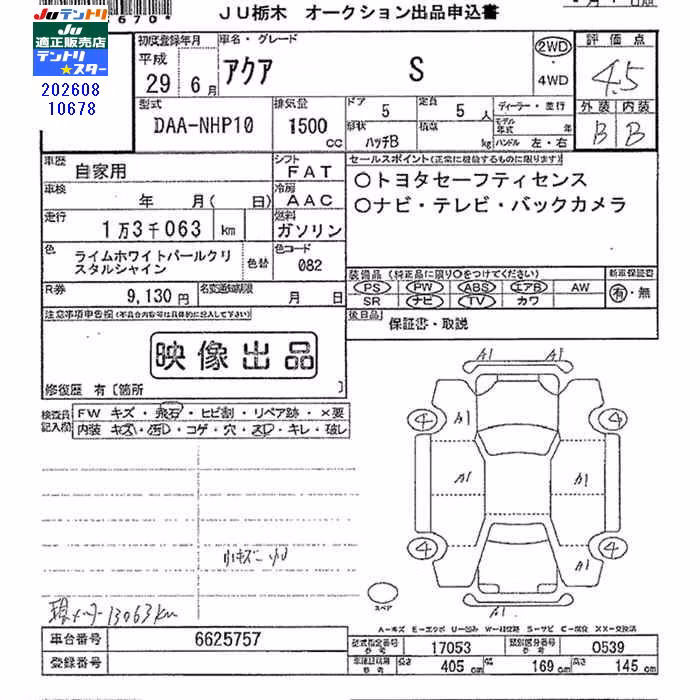 JUテントリ
Ju
適正販売店
テントリ
★スター
202608
10678
JU栃木 オークション出品申込書
初度登録年月
平成
29年 6月
車名・グレード
アクア S
2WD
・
4WD
評価点
4.5
外装 内装
B B
型式
DAA-NHP10
排気量
1500
cc
ドア 5
定員 5 人
形状 ハッチB
積載 kg
ディーラー・並行
モデル年式 年
ハンドル 左・右
車歴 自家用
シフト FAT
車検 年 月( 日)
冷房 AAC
走行 1万3千063 km
燃料 ガソリン
色 ライムホワイトパールクリスタルシャイン
色替
色コード 082
R券 9,130円
名変通知期限 月 日
セールスポイント(正常に機能するものに限ります)
〇トヨタセーフティセンス
〇ナビ・テレビ・バックカメラ
装備品 (純正品に限り〇をつけてください)
PS PW ABS エアB AW
SR ナビ TV カワ
新車保証書
有・無
後日品 保証書・取説
注意事項申告欄(不具合内容は具体的に記入して下さい)
映像出品
修復歴 有〔箇所 〕
検査員
記入欄
FW キズ・飛石・ヒビ割・リペア跡・×要
内装 キズ・汚レ・コゲ・穴・スレ・キレ・破レ
A1 A1
4 4
A1
A1 A1
4 4
A1
A1
小キズ
13063km
スペア
A-キズ E-エクボ U-凹み W-補修跡 S-サビ C-腐食 XX-交換済
車台番号 6625757
登録番号
型式指定番号 17053
類別区分番号 0539
車検証記載参考
長さ 405 cm
幅 169 cm
高さ 145 cm